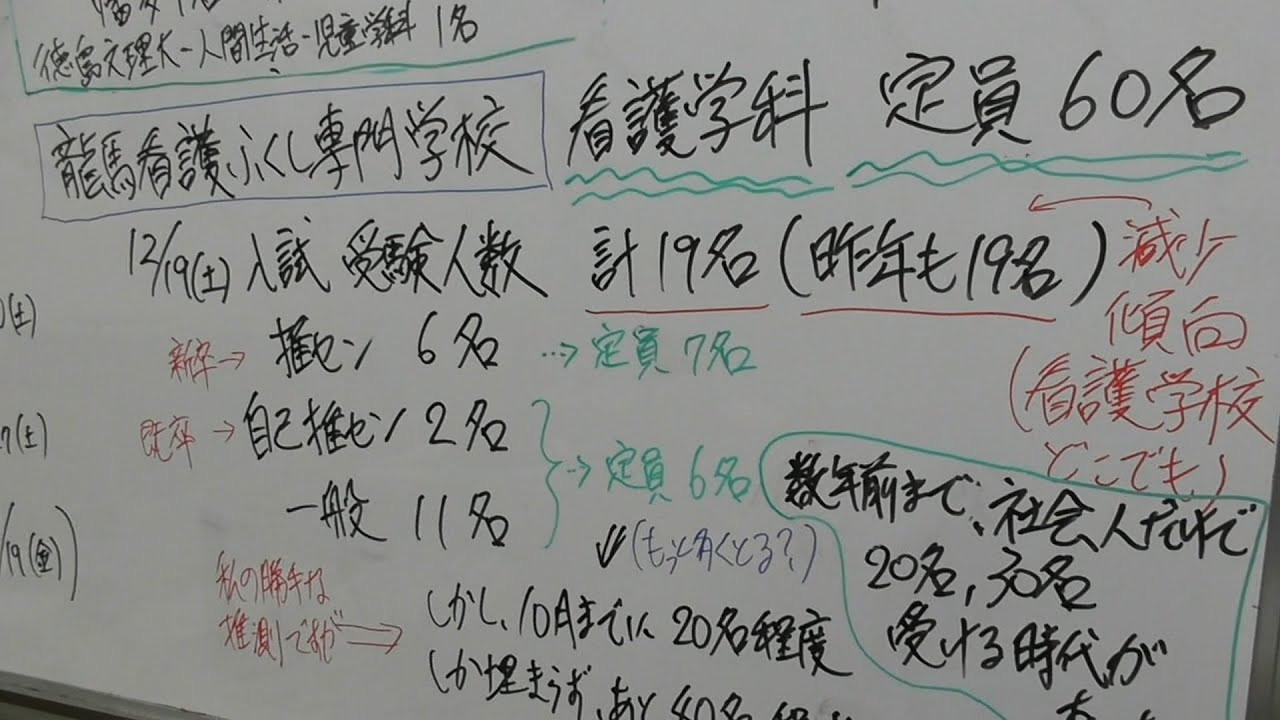 徳島文理大-人間生活-児童学科 1名
龍馬看護ふくし専門学校
看護学科 定員60名
12/19(土) 入試 受験人数 計19名 (昨年も19名)
減少
傾向
(看護学校
どこでも)
新卒→ 推セン 6名 …→ 定員 7名
既卒→ 自己推セン 2名
一般 11名
…→ 定員 6名
(もっと多くとる?)
私の勝手な
推測ですが
しかし、10月までに 20名程度
しか埋まらず、あと 40名
数年前まで、社会人だけで
20名, 30名
受ける時代が
(土)
7(土)
/19(金)